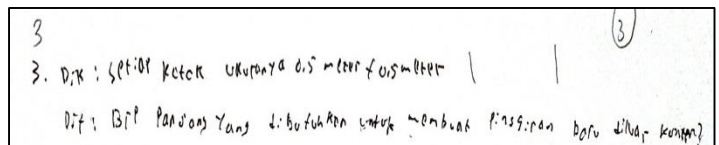 3 3
3. Dik : Setiap kotak ukuranya 0,5 meter x 0,5 meter
Dit : Brp Panjang Yang dibutuhkan untuk membuat Pinggiran baru diluar kolam?